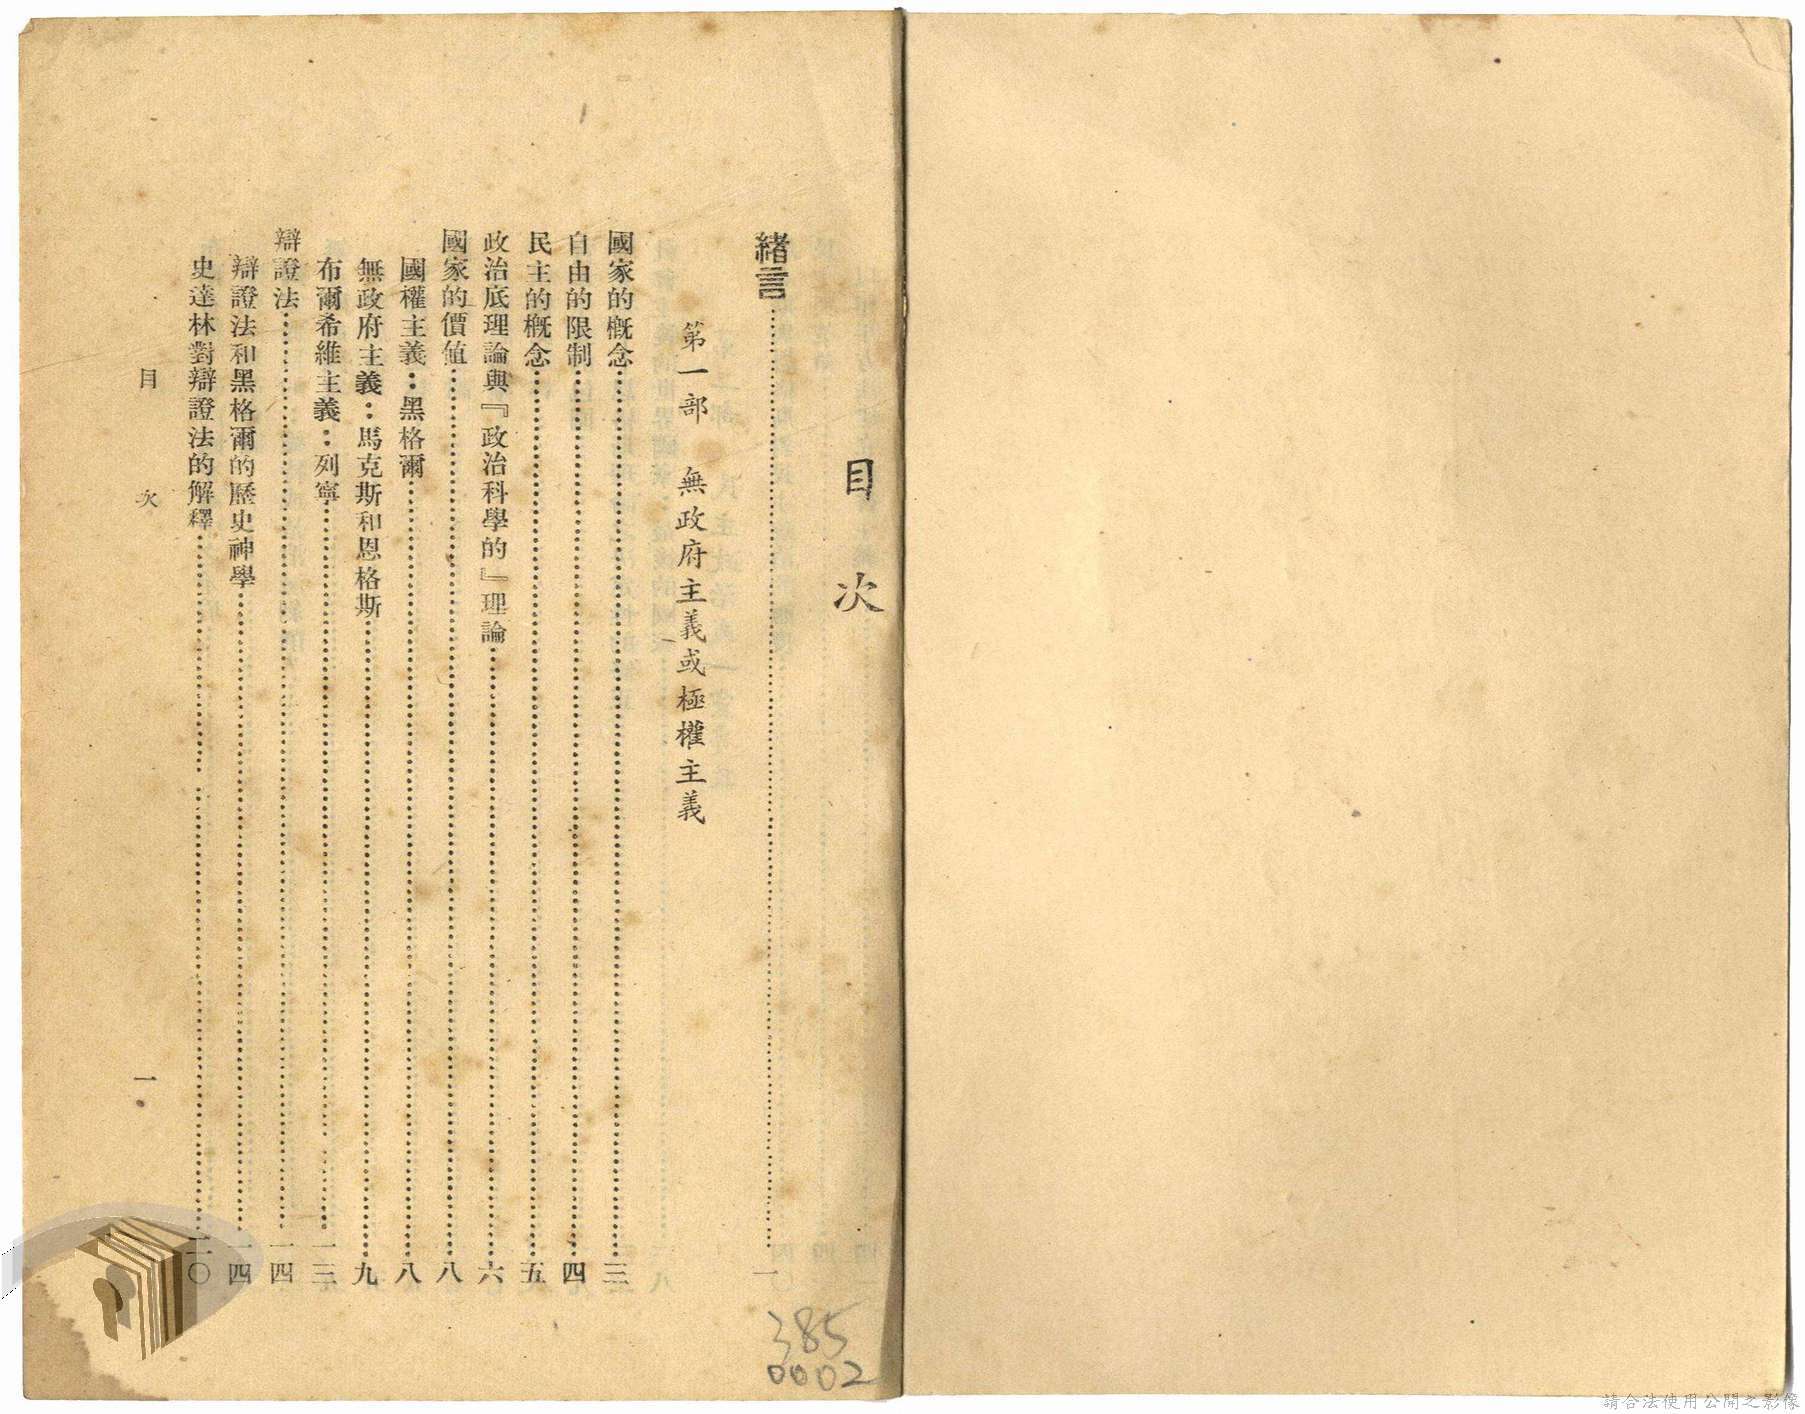 目次
緒言………一
第一部　無政府主義或極權主義
國家的概念………三
自由的限制………四
民主的概念………五
政治底理論與『政治科學的』理論………六
國家的價值………八
國權主義：黑格爾………八
無政府主義：馬克斯和恩格斯………九
布爾希維主義：列寧………一三
辯證法………一四
辯證法和黑格爾的歷史神學………一四
史達林對辯證法的解釋………二〇
目次
一
385
0002
請合法使用公開之影像